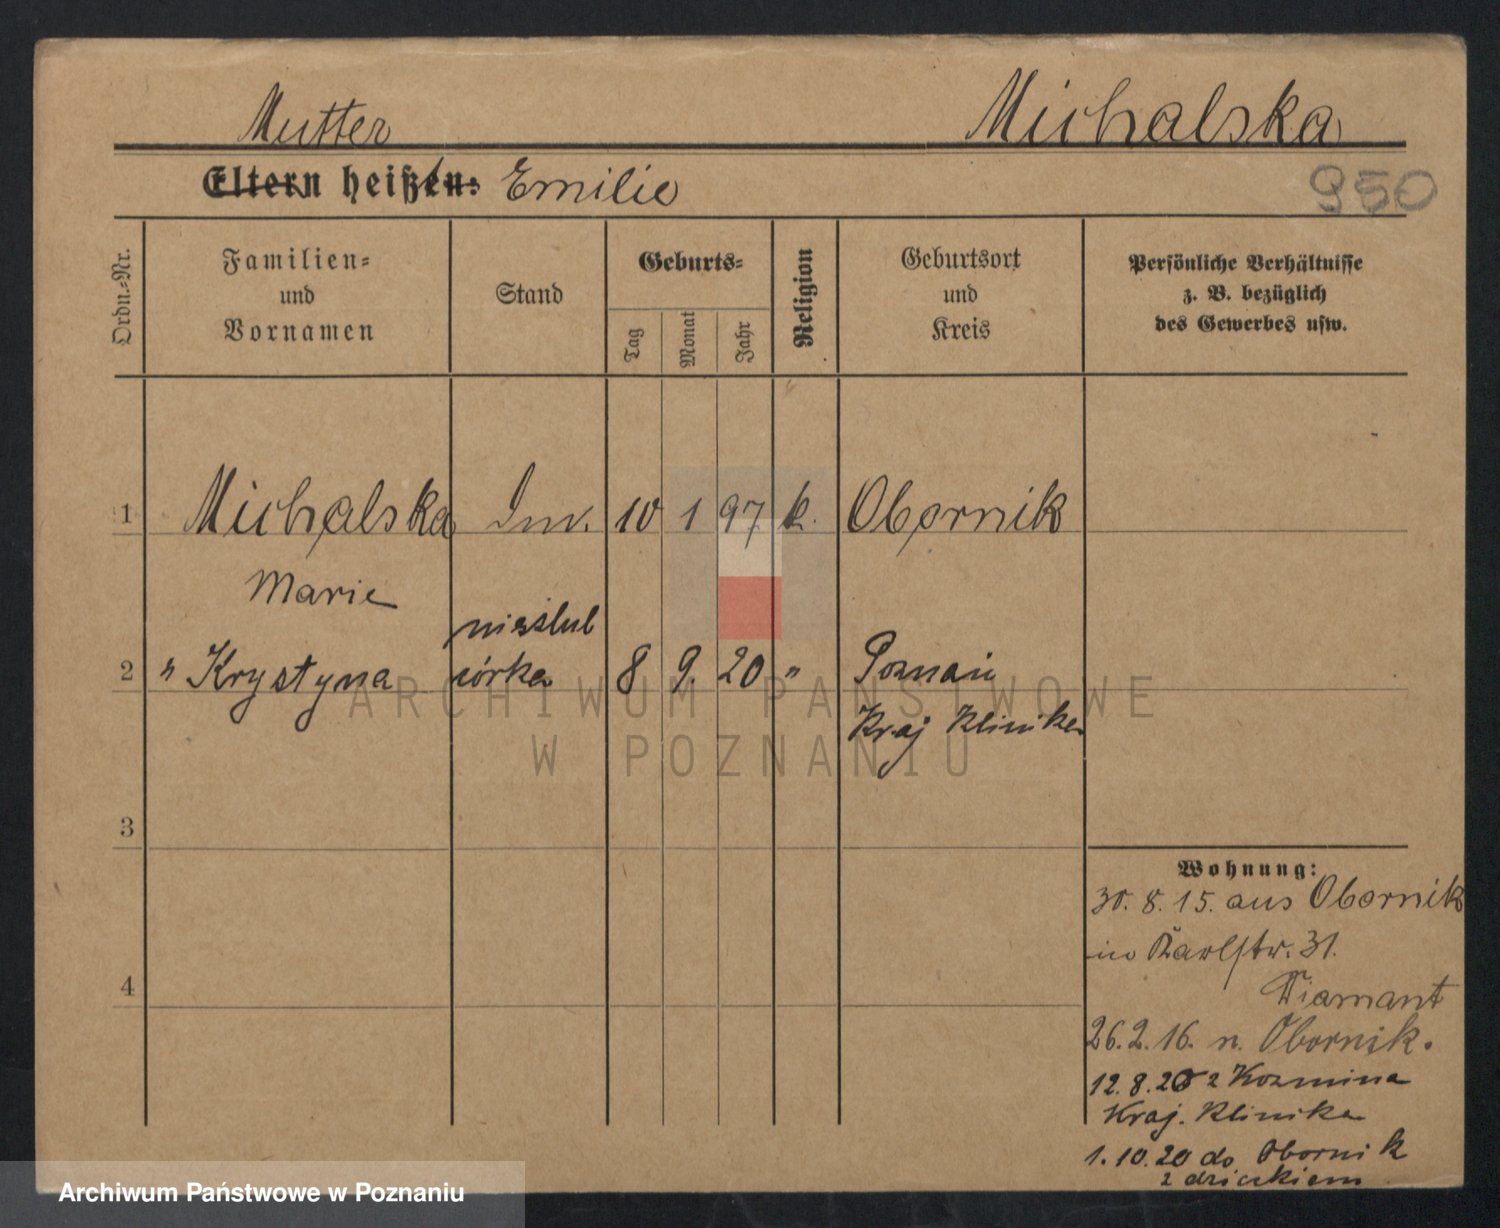 Mutter Michalska
Eltern heißen: Emilie 950
Ordn.-Nr.
Familien-
und
Vornamen
Stand
Geburts-
Tag
Monat
Jahr
Religion
Geburtsort
und
Kreis
Persönliche Verhältnisse
z. B. bezüglich
des Gewerbes usw.
1 Michalska 10 1 97 k. Obornik
Marie
nieślub
2 " Krystyna córka 8 9. 20 " Poznań
Kraj Klinika
ARCHIWUM PAŃSTWOWE
W POZNANIU
3
4
Wohnung:
30. 8. 15. aus Obornik
in Karlstr. 31.
Diamant
26. 2. 16. n. Obornik.
12. 8. 20 z Kozmina
Kraj. Klinika
1. 10. 20 do Obornik
z dzieckiem
Archiwum Państwowe w Poznaniu